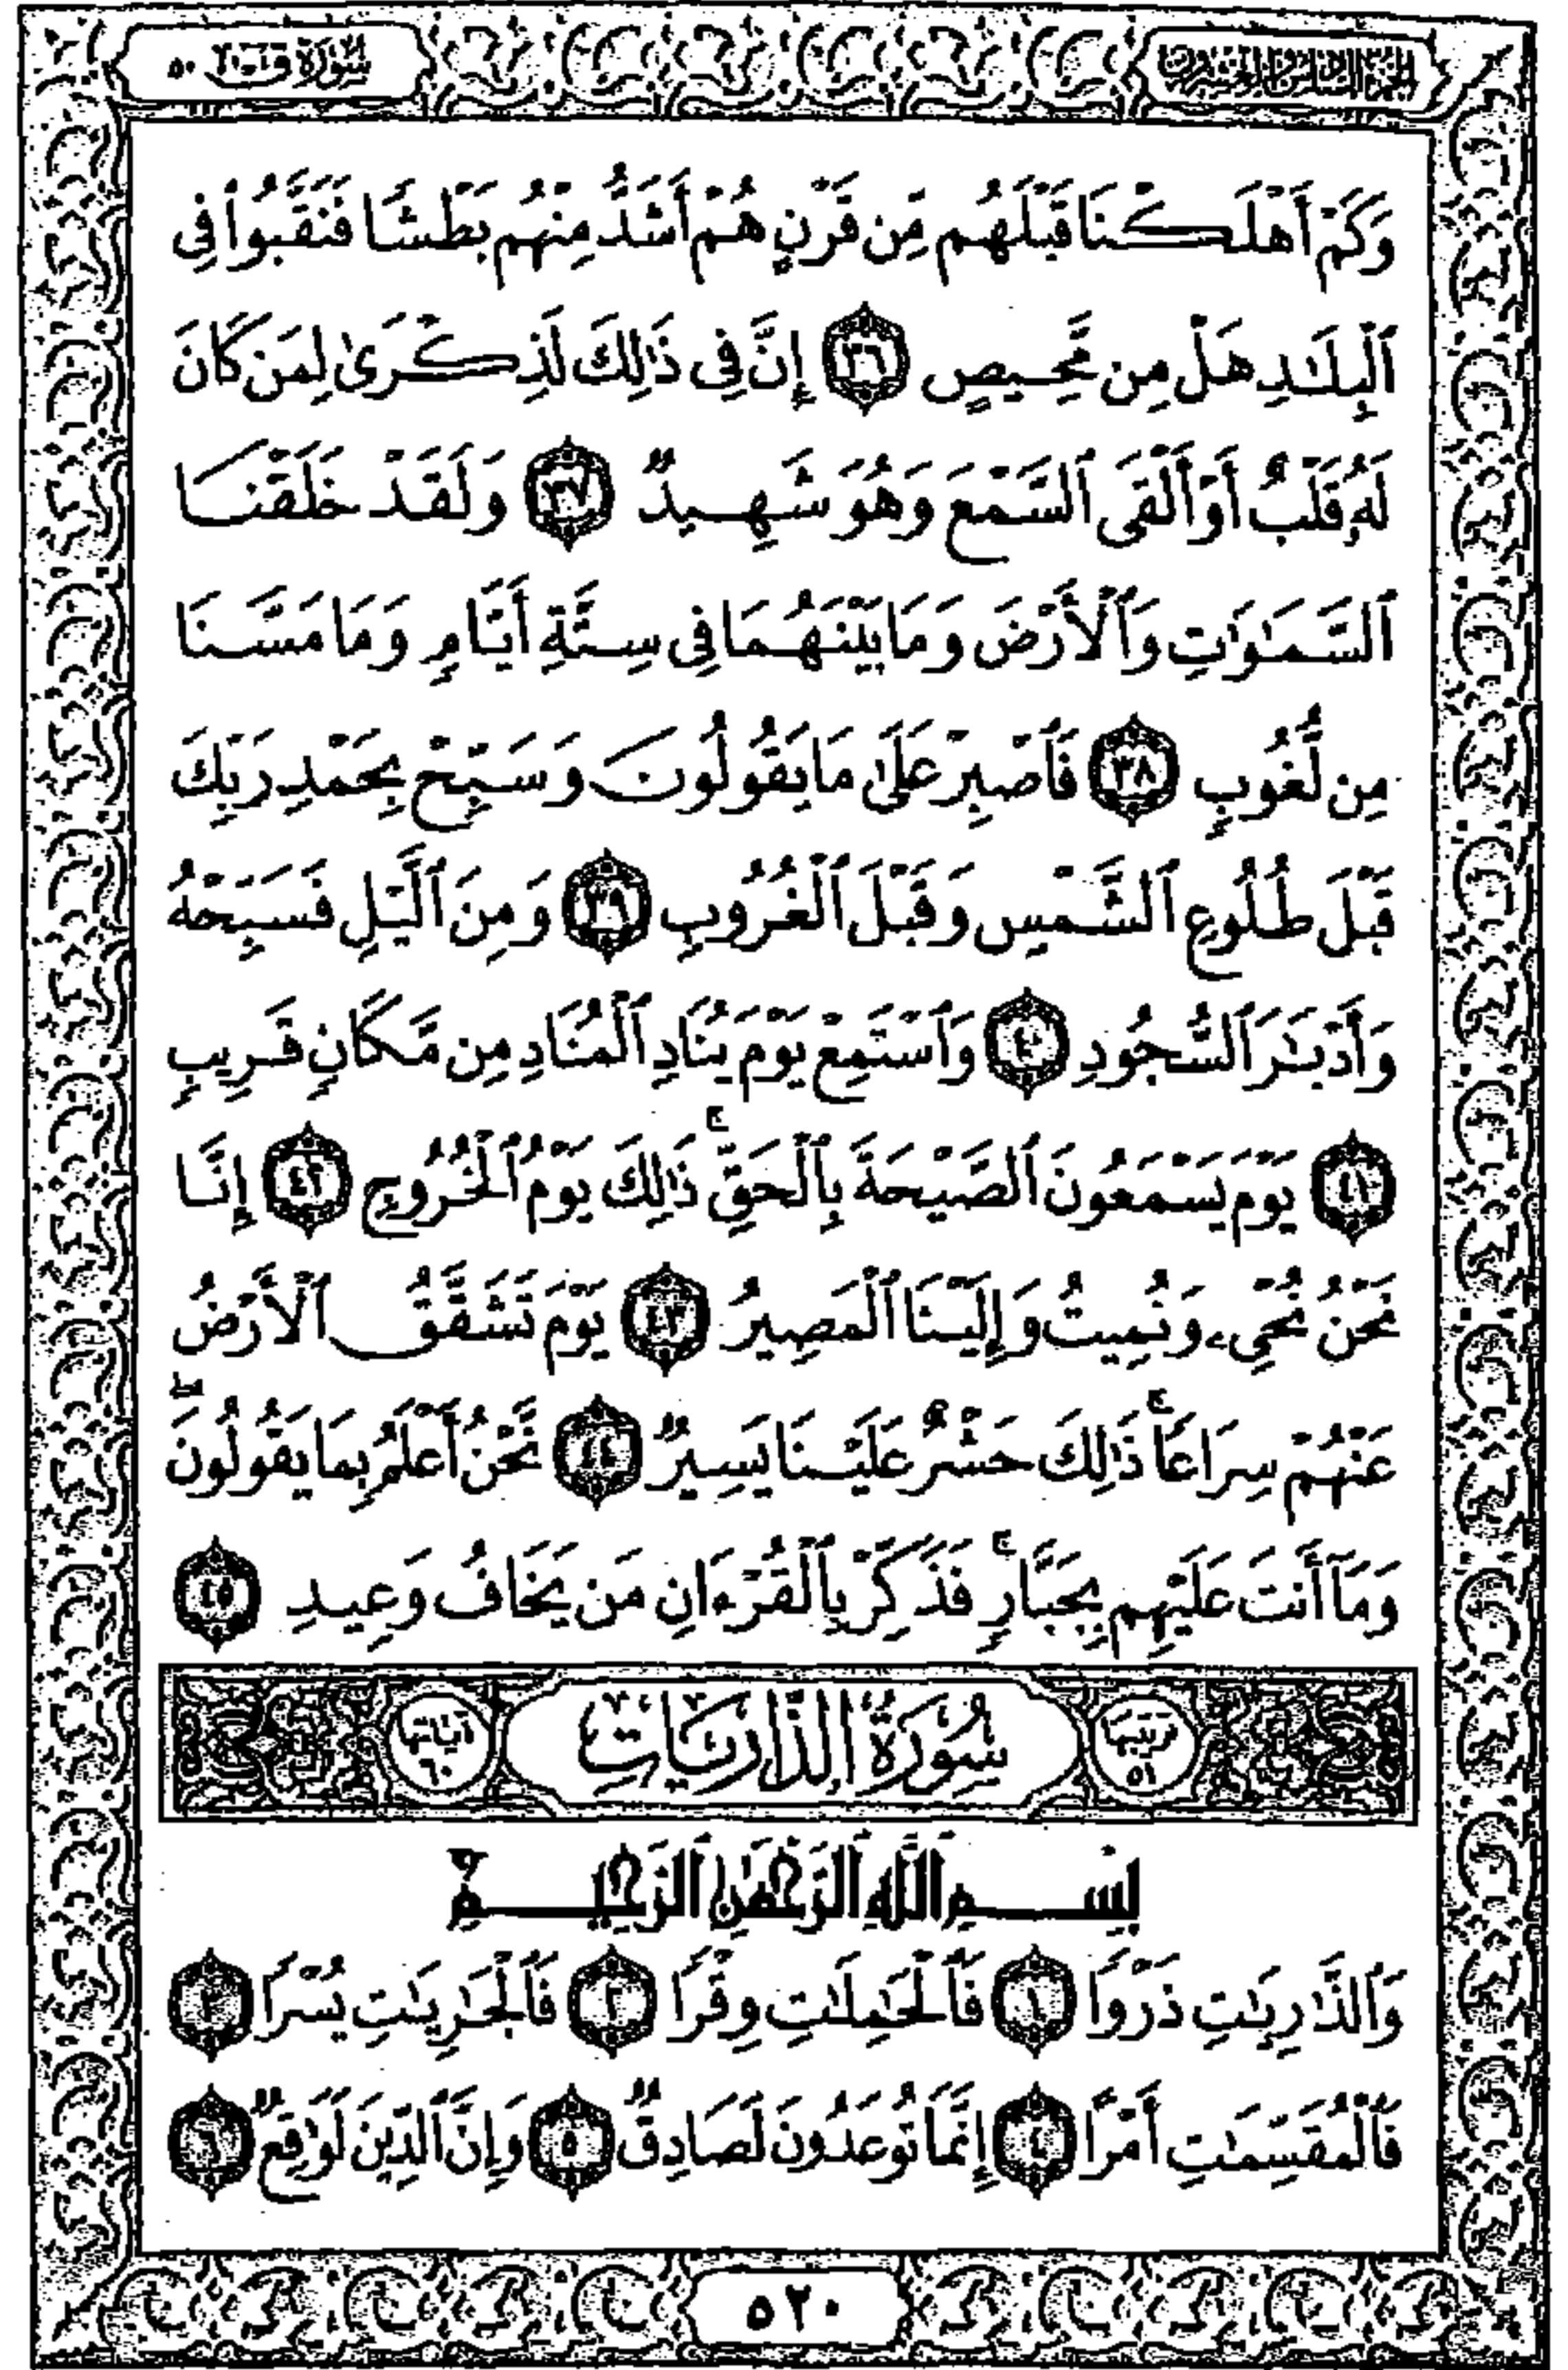 سُورَةُ قٓ ٥٠
الجزء السادس والعشرون
وَكَمْ أَهْلَكْنَا قَبْلَهُم مِّن قَرْنٍ هُمْ أَشَدُّ مِنْهُم بَطْشًا فَنَقَّبُوا۟ فِى
ٱلْبِلَـٰدِ هَلْ مِن مَّحِيصٍ ٣٦ إِنَّ فِى ذَٰلِكَ لَذِكْرَىٰ لِمَن كَانَ
لَهُۥ قَلْبٌ أَوْ أَلْقَى ٱلسَّمْعَ وَهُوَ شَهِيدٌ ٣٧ وَلَقَدْ خَلَقْنَا
ٱلسَّمَـٰوَٰتِ وَٱلْأَرْضَ وَمَا بَيْنَهُمَا فِى سِتَّةِ أَيَّامٍ وَمَا مَسَّنَا
مِن لُّغُوبٍ ٣٨ فَٱصْبِرْ عَلَىٰ مَا يَقُولُونَ وَسَبِّحْ بِحَمْدِ رَبِّكَ
قَبْلَ طُلُوعِ ٱلشَّمْسِ وَقَبْلَ ٱلْغُرُوبِ ٣٩ وَمِنَ ٱلَّيْلِ فَسَبِّحْهُ
وَأَدْبَـٰرَ ٱلسُّجُودِ ٤٠ وَٱسْتَمِعْ يَوْمَ يُنَادِ ٱلْمُنَادِ مِن مَّكَانٍ قَرِيبٍ
٤١ يَوْمَ يَسْمَعُونَ ٱلصَّيْحَةَ بِٱلْحَقِّ ۚ ذَٰلِكَ يَوْمُ ٱلْخُرُوجِ ٤٢ إِنَّا
نَحْنُ نُحْىِۦ وَنُمِيتُ وَإِلَيْنَا ٱلْمَصِيرُ ٤٣ يَوْمَ تَشَقَّقُ ٱلْأَرْضُ
عَنْهُمْ سِرَاعًا ۚ ذَٰلِكَ حَشْرٌ عَلَيْنَا يَسِيرٌ ٤٤ نَّحْنُ أَعْلَمُ بِمَا يَقُولُونَ ۖ
وَمَآ أَنتَ عَلَيْهِم بِجَبَّارٍ ۖ فَذَكِّرْ بِٱلْقُرْءَانِ مَن يَخَافُ وَعِيدِ ٤٥
ترتيبها ٥١ سُورَةُ الذَّارِيَاتِ آياتها ٦٠
بِسْمِ ٱللَّهِ ٱلرَّحْمَـٰنِ ٱلرَّحِيمِ
وَٱلذَّٰرِيَـٰتِ ذَرْوًا ١ فَٱلْحَـٰمِلَـٰتِ وِقْرًا ٢ فَٱلْجَـٰرِيَـٰتِ يُسْرًا ٣
فَٱلْمُقَسِّمَـٰتِ أَمْرًا ٤ إِنَّمَا تُوعَدُونَ لَصَادِقٌ ٥ وَإِنَّ ٱلدِّينَ لَوَٰقِعٌ ٦
٥٢٠